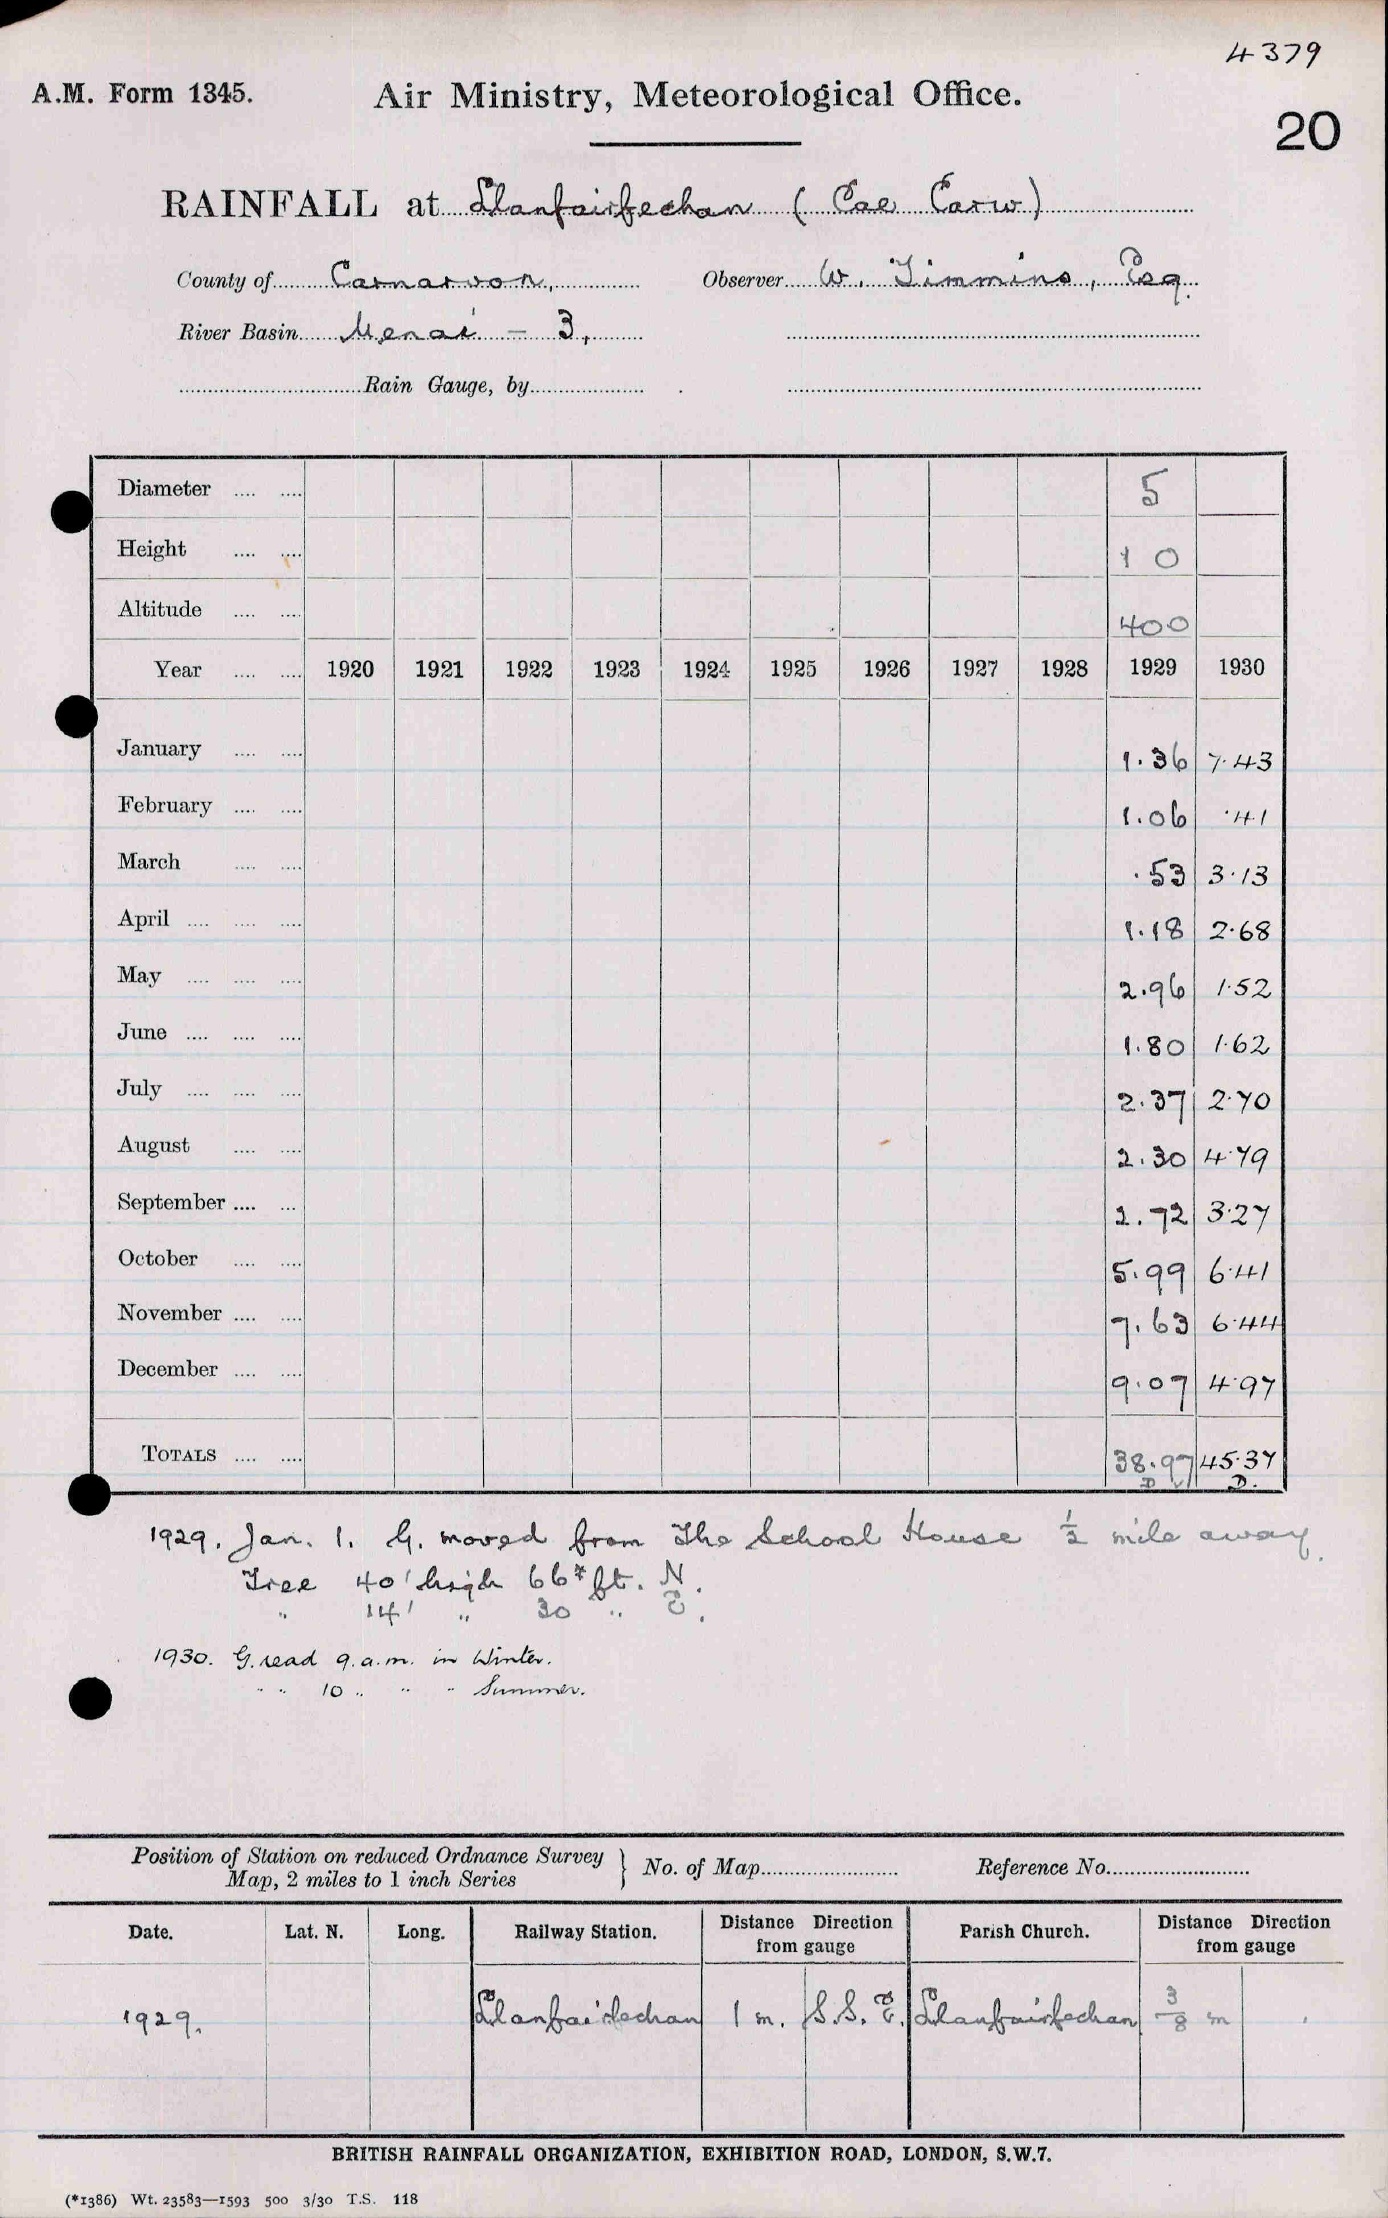 4379
A.M. Form 1345.
Air Ministry, Meteorological Office.
20
RAINFALL at Llanfairfechan (Cae Carw)
County of Carnarvon, Observer W. Timmins, Esq.
River Basin Menai - 3,
Rain Gauge, by
Diameter 5
Height 1 0
Altitude 400
Year 1920 1921 1922 1923 1924 1925 1926 1927 1928 1929 1930
January 1.36 7.43
February 1.06 .41
March .53 3.13
April 1.18 2.68
May 2.96 1.52
June 1.80 1.62
July 2.37 2.70
August 2.30 4.79
September 2.72 3.27
October 5.99 6.41
November 7.63 6.44
December 9.07 4.97
TOTALS 38.97 45.37
D ✓ D.
1929. Jan. 1. G. moved from The School House 1/2 mile away.
Tree 40' high 66* ft. N.
" 14' " 30 " E.
1930. G. read 9.a.m. in Winter.
" " 10 " " " Summer.
Position of Station on reduced Ordnance Survey
Map, 2 miles to 1 inch Series } No. of Map Reference No.
Date. Lat. N. Long. Railway Station. Distance Direction from gauge Parish Church. Distance Direction from gauge
1929. Llanfairfechan 1 m. S.S.E. Llanfairfechan 3/8 m
BRITISH RAINFALL ORGANIZATION, EXHIBITION ROAD, LONDON, S.W.7.
(*1386) Wt. 23583—1593 500 3/30 T.S. 118